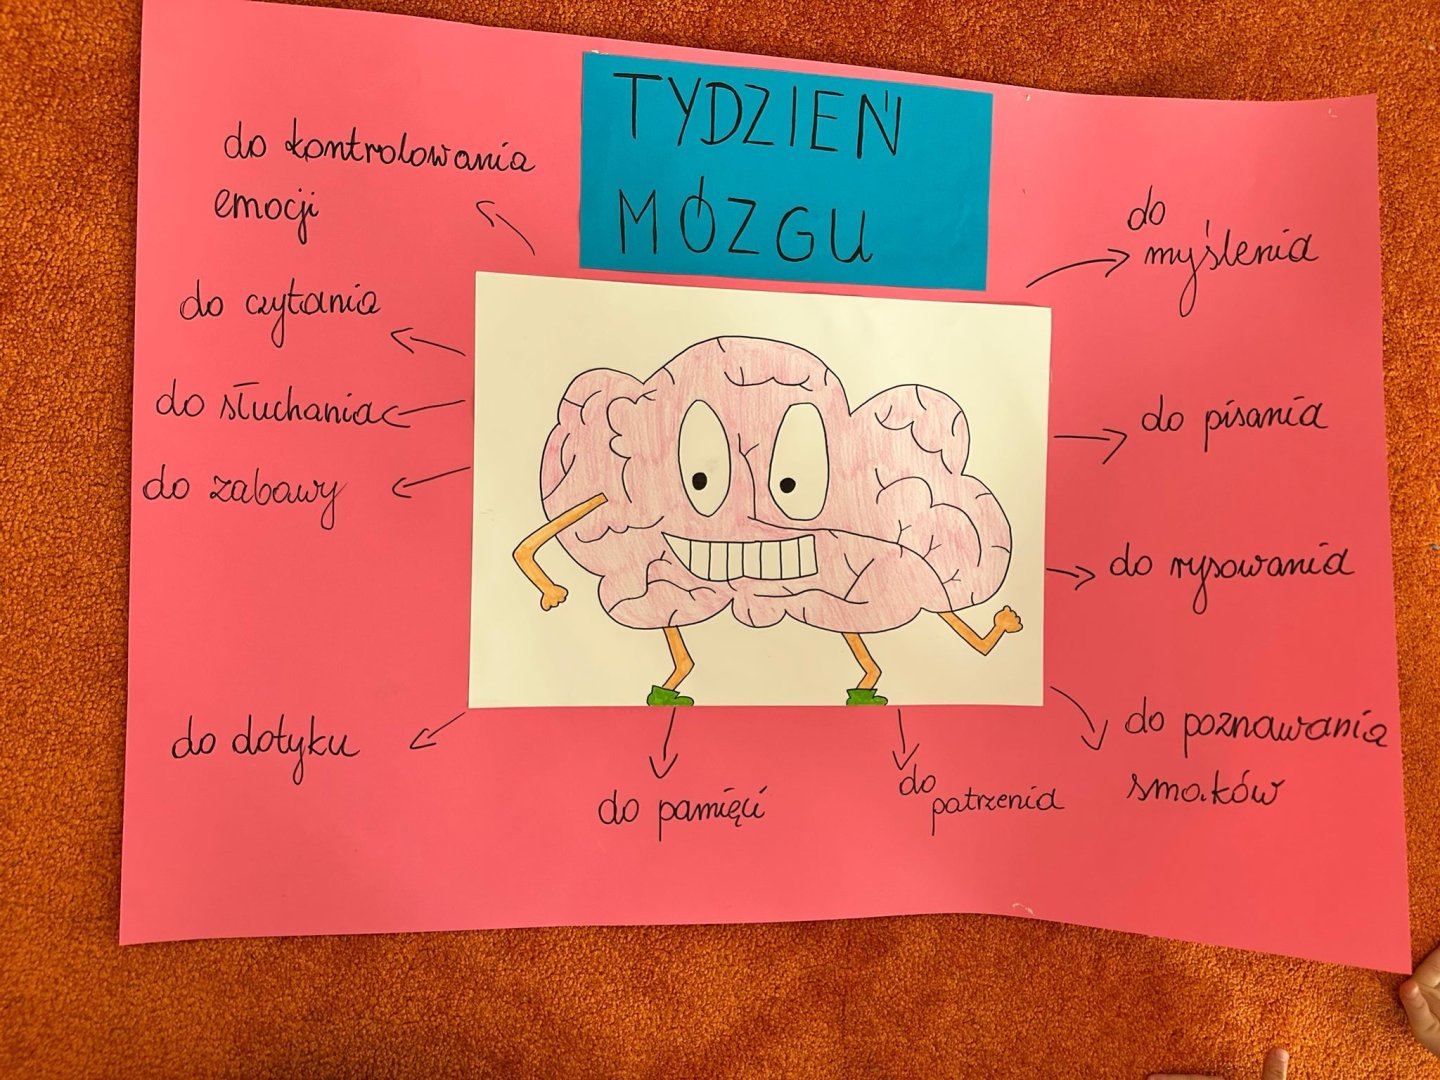 TYDZIEŃ
MÓZGU
do kontrolowania
emocji
do czytania
do słuchania
do zabawy
do dotyku
do pamięci
do
patrzenia
do
myślenia
do pisania
do rysowania
do poznawania
smaków